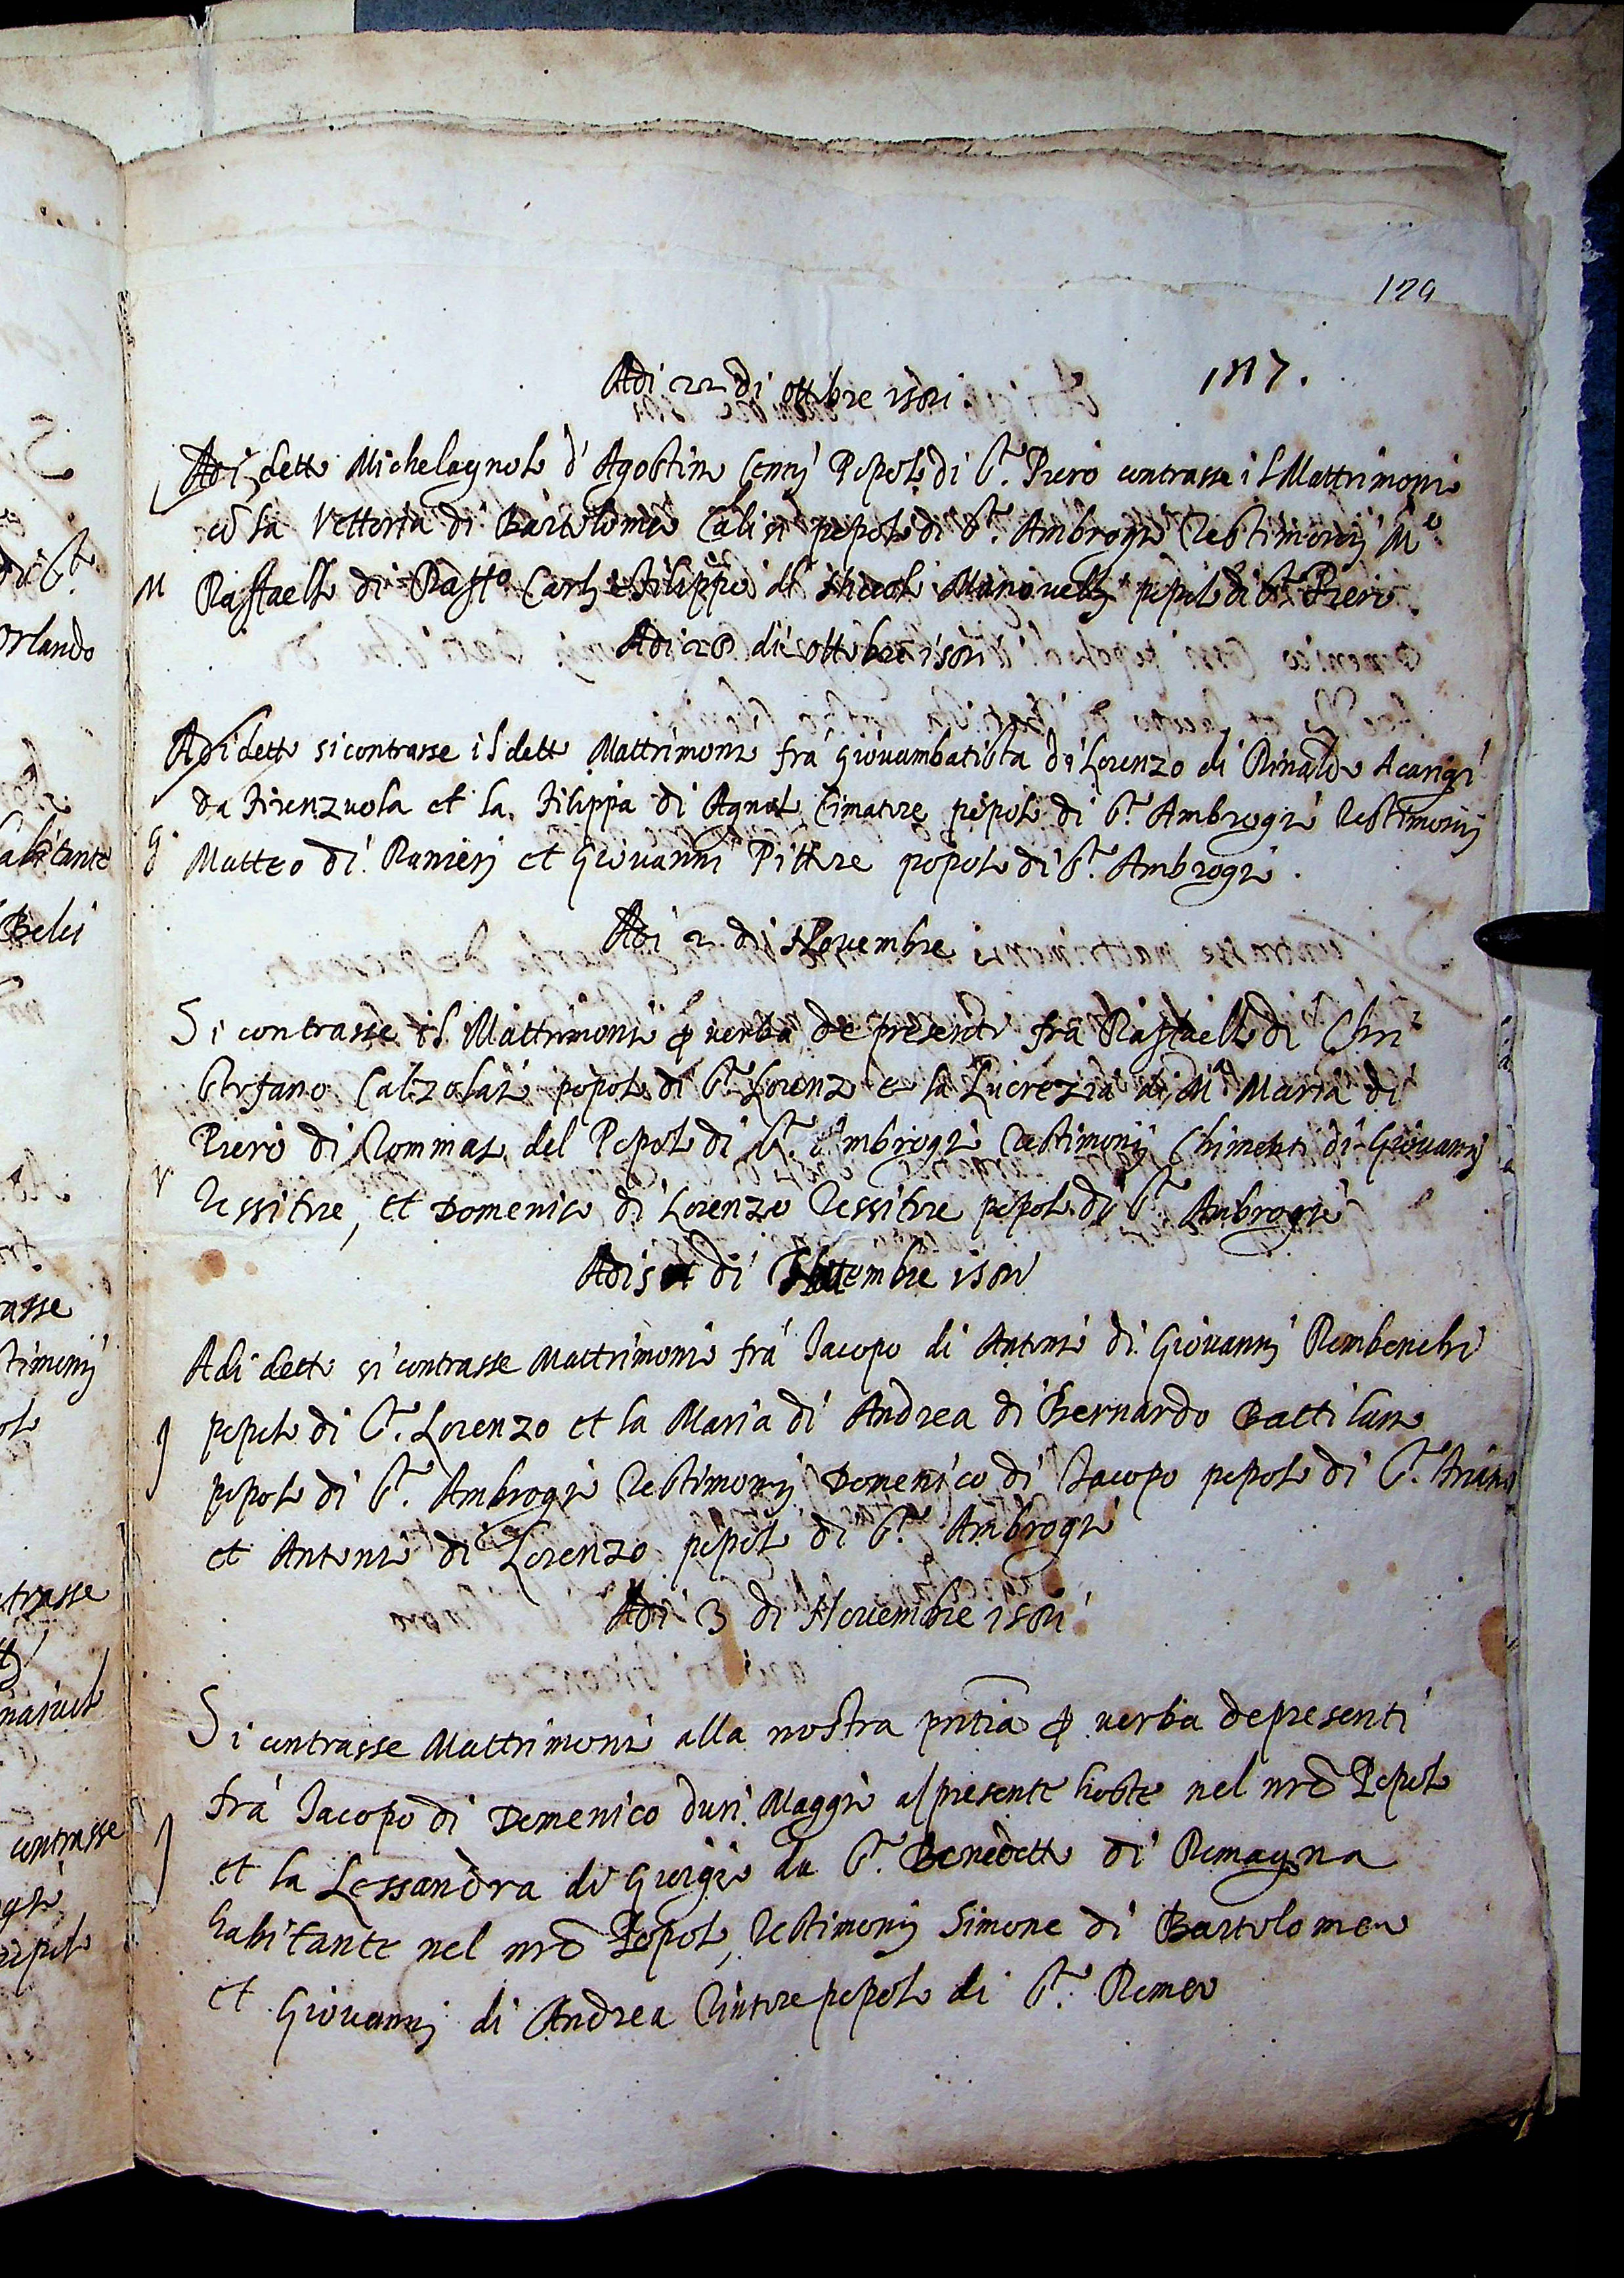 129
187.
Adi 22 di ottobre 1581
Adi detto Michelagnolo d'Agostino Cenni Popolo di S.to Piero contrasse il Mattrimonio
cō la Vettoria di Bartolomeo popolo di S.to Ambrogio Testimonij M.o
M Raffaello di Raff.o Carli e Filippo di Nicolo Manovelli popolo di S.to Piero.
Adi 28 di ottobre 1581
Adi detto si contrasse il detto Mattrimonio frà Giovambatista di Lorenzo di Rinaldo Acarigi
da Firenzuola et la Filippa di Agnolo Cimatore popolo di S.to Ambrogio Testimonij
G Matteo di Ranierj et Giovanni Pittore popolo di S.to Ambrogio.
Adi 2 di Novembre
Si contrasse il Mattrimonio p verba de presenti frà Raffaello di Chri
stofano Calzolaio popolo di S.to Lorenzo e la Lucrezia di M.a Maria di
Piero di Tommaso del Popolo di S.to Ambrogio Testimonij Chimenti di Giovannj
V Tessitore, et Domenico di Lorenzo Tessitore popolo di S.to Ambrogio
Adi di 1581
Adi detto si contrasse Mattrimonio frà Jacopo di Antonio di Giovannj
popolo di S.to Lorenzo et la Maria di Andrea di Bernardo Battilano
popolo di S.to Ambrogio Testimonij Domenico di Jacopo popolo di S.to
et Antonio di Lorenzo popolo di S.to Ambrogio
Adi 3 di Novembre 1581
Si contrasse Mattrimonio alla nostra pntia p verba depresenti
frà Jacopo di Domenico Maggio al presente hoste nel nrō Popolo
et la Lessandra di Giorgio da S.to Benedetto di Romagna
habitante nel nrō Popolo, Testimonij Simone di Bartolomeo
et Giovannj di Andrea Tintore popolo di S.to Romeo